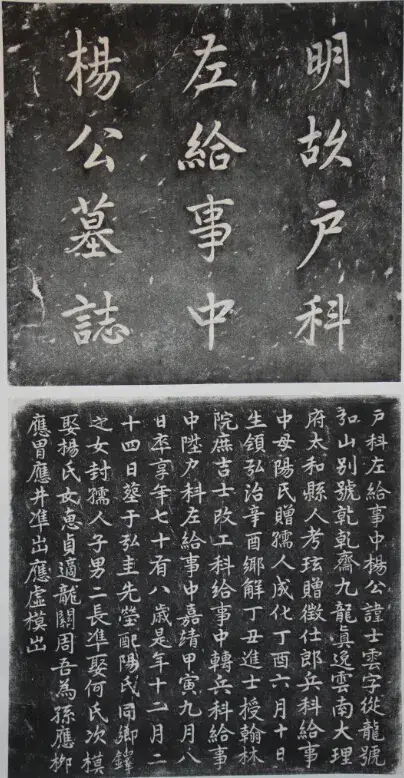 明故户科
左給事中
楊公墓誌
户科左給事中楊公諱士雲字從龍號
弘山别號乾乾齋九龍真逸雲南大理
府太和縣人考玹贈徵仕郎兵科給事
中母陽氏贈孺人成化丁酉六月十日
生領弘治辛酉鄉解丁丑進士授翰林
院庶吉士改工科給事中轉兵科給事
中陞户科左給事中嘉靖甲寅九月八
日卒享年七十有八歲是年十一月二
十四日葬于弘圭先塋配陽氏同鄉鐸
之女封孺人子男二長準娶何氏次模
娶楊氏女惠貞適龍關周吾為孫應柳
應胃應井準出應虚模出